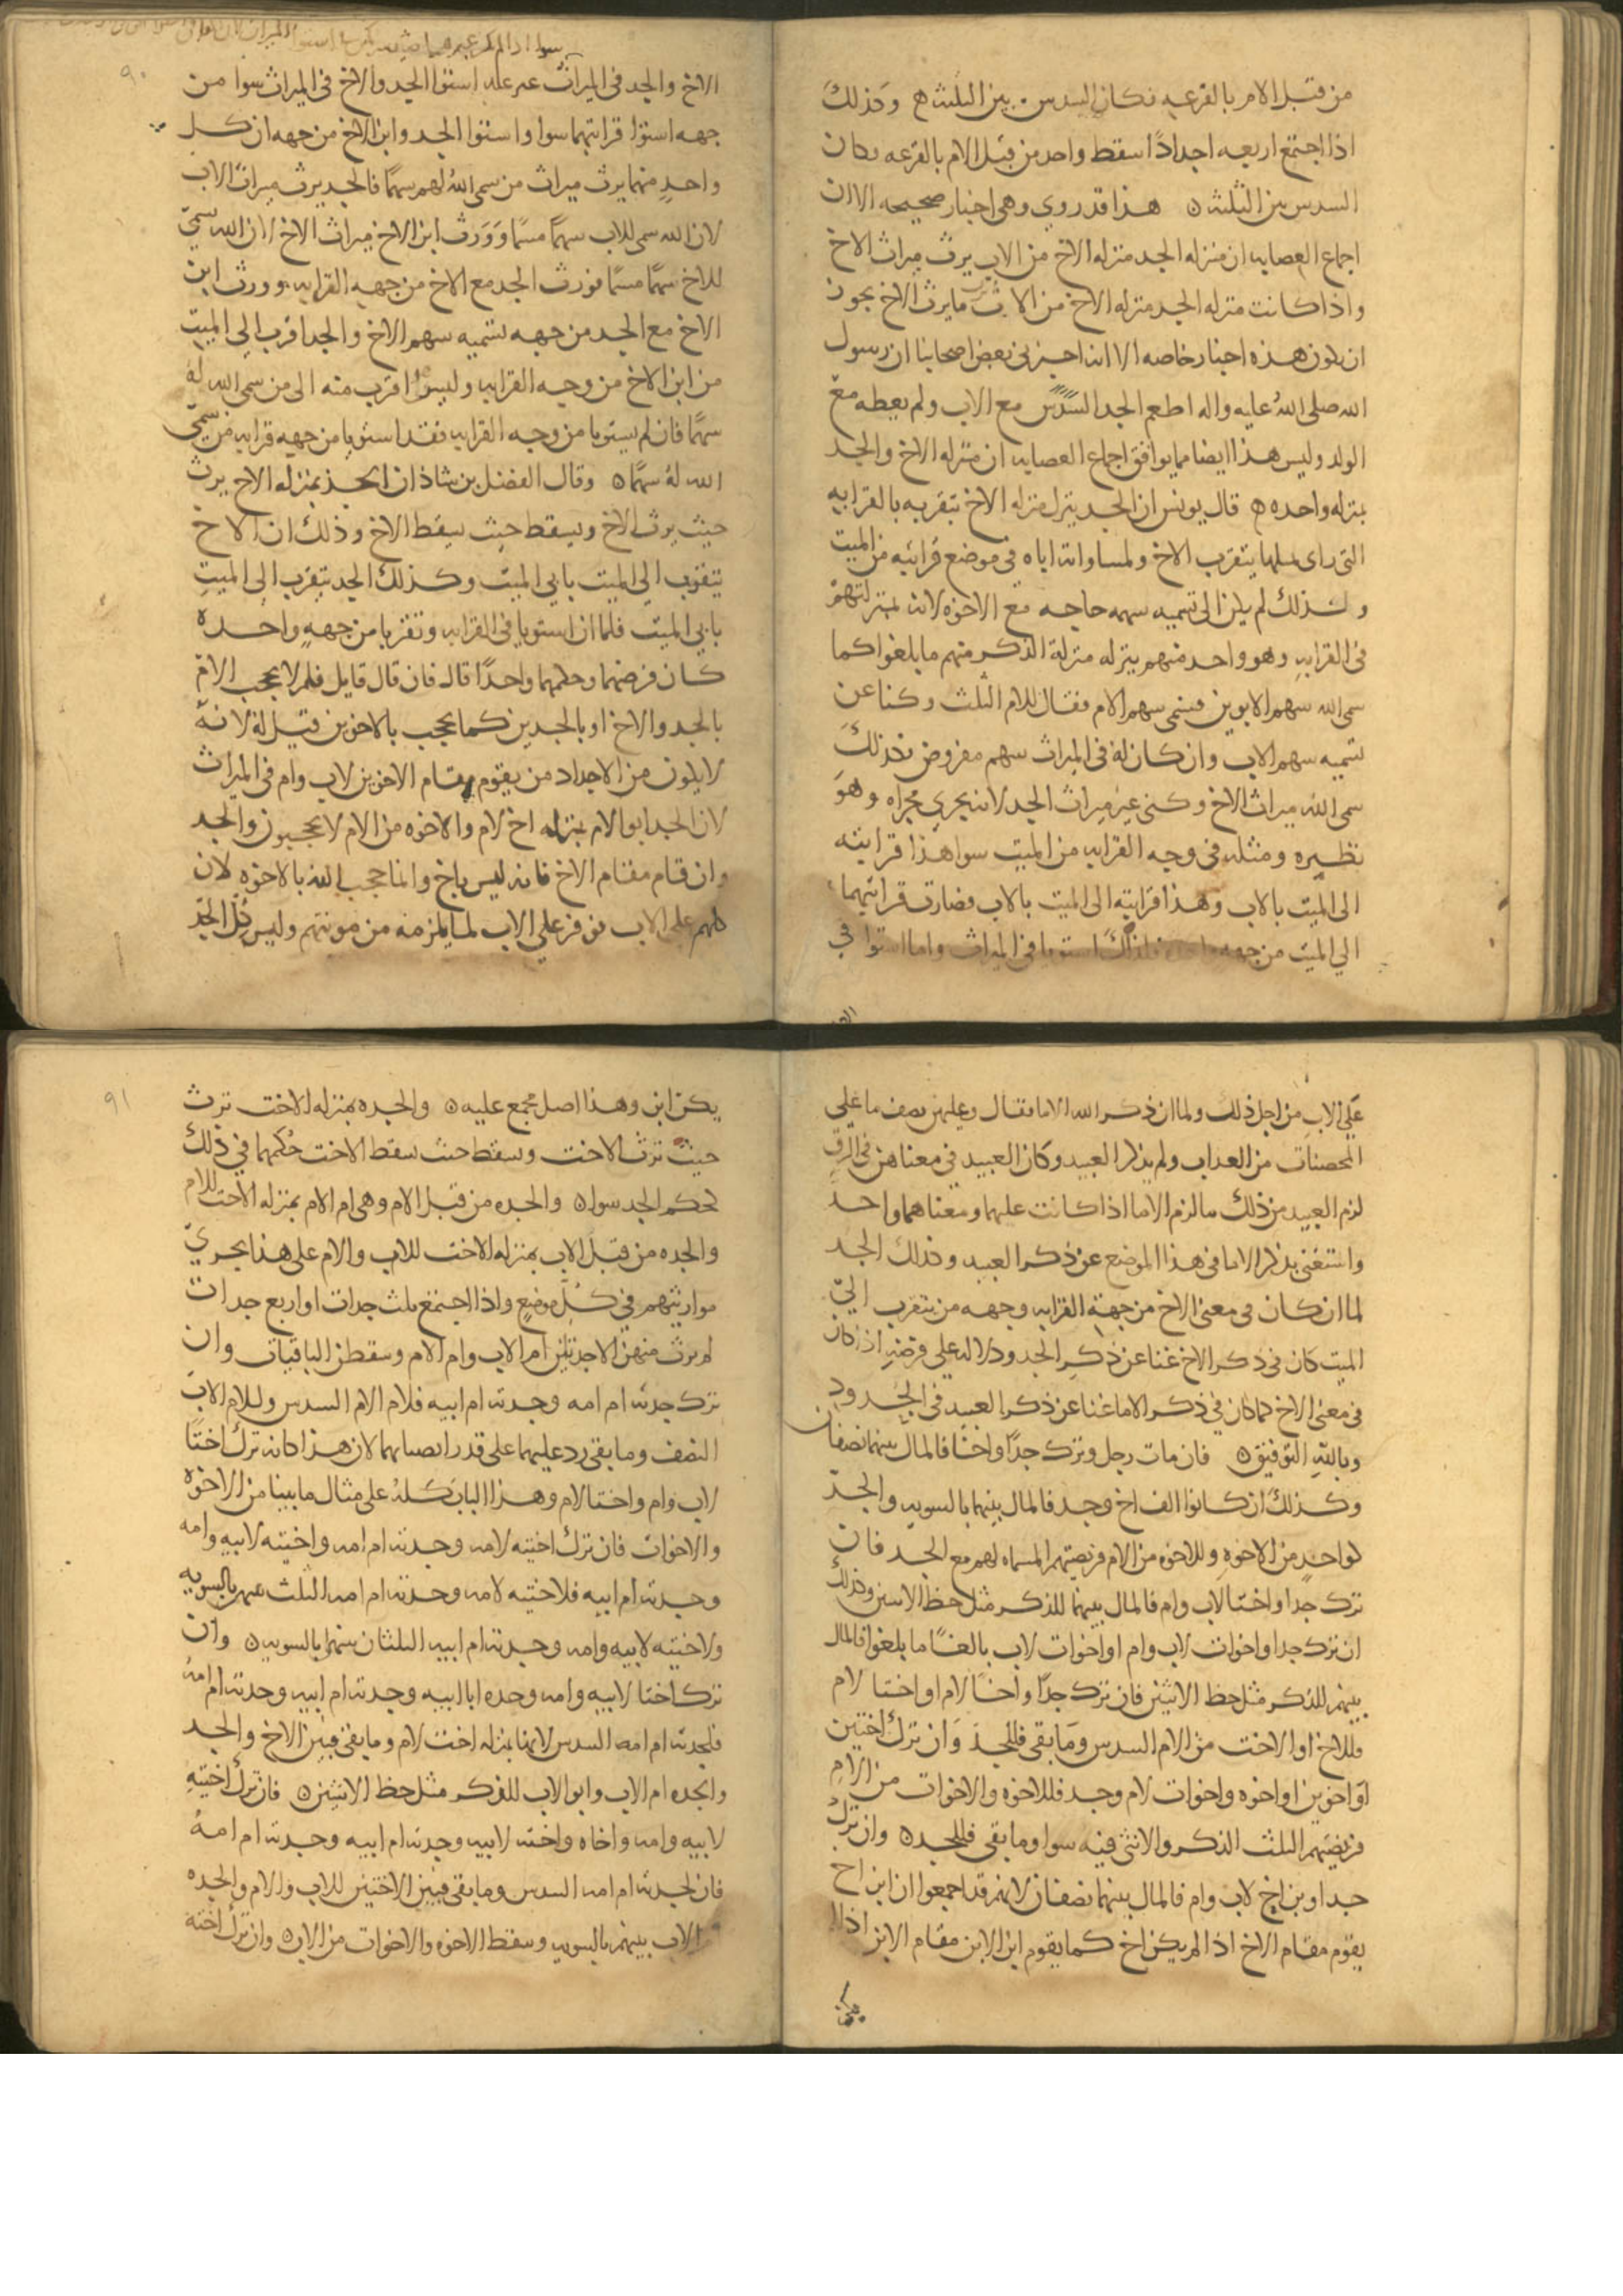 من قبل الام بالقرعه فكان السدس بين الثلثه وكذلك
اذا اجتمع اربعه اجدادًا سقط واحد من قبل الام بالقرعه وكان
السدس بين الثلثه هذا قد روي وهي اخبار صحيحه الا ان
اجماع العصابه ان منزله الجد منزله الاخ من الاب يرث ميراث الاخ
واذا كانت منزله الجد منزله الاخ من الاب يرث ما يرث الاخ يجوز
ان يكون هذه اخبار خاصه الا انه اخبرني بعض اصحابنا ان رسول
الله صلى الله عليه واله اطعم الجد السدس مع الاب ولم يعطه مع
الولد وليس هذا ايضا مما يوافق اجماع العصابه ان منزله الاخ والجد
بمنزله واحده قال يونس ان الجد ينزل منزله الاخ بتقربه بالقرابه
التي راى بمثلها يتقرب الاخ ولمساواته اياه في موضع قرابته من الميت
ولذلك لم يكن الى تسميه سهمه حاجه مع الاخوه لانه بمنزلتهم
في القرابه وهو واحد منهم ينزله منزلة الذكر منهم ما بلغوا كما
سمى الله سهم الابوين فسمى سهم الام فقال للام الثلث وكنا عن
تسميه سهم الاب وان كان له في الميراث سهم مفروض فكذلك
سمى الله ميراث الاخ وكنى عن ميراث الجد لانه يجري مجراه وهو
نظيره ومثله في وجه القرابه من الميت سوا هذا قرابته
الى الميت بالاب وهذا قرابته الى الميت بالاب فصارت قرابتهما
الى الميت من جهه واحده فلذلك استويا في الميراث واما استوا في
الاخ والجد في الميراث استوا الجد والاخ في الميراث سوا من
جهه استوا قرابتهما سوا واستوا الجد وابن الاخ من جهه ان كل
واحد منهما يرث ميراث من سمى الله لهم سهمًا فالجد يرث ميراث الاب
لان الله سمى للاب سهمًا مسمًا وورث ابن الاخ ميراث الاخ لان الله سمي
للاخ سهمًا مسمًا فورث الجد مع الاخ من جهه القرابه وورث ابن
الاخ مع الجد من جهه تسميه سهم الاخ والجد اقرب الى الميت
من ابن الاخ من وجه القرابه وليس اقرب منه الى من سمى الله له
سهمًا فان لم يستويا من وجه القرابه فقد استويا من جهه قرابه من سمي
الله له سهمًا وقال الفضل بن شاذان الجد بمنزله الاخ يرث
حيث يرث الاخ ويسقط حيث يسقط الاخ وذلك ان الاخ
يتقرب الى الميت بابي الميت وكذلك الجد يتقرب الى الميت
بابي الميت فلما ان استويا في القرابه وتقربا من جهه واحده
كان فرضهما وحكمهما واحدًا قال فان قال قايل فلم لا يحجب الام
بالجد والاخ او بالجدين كما يحجب بالاخوين قيل له لانه
لا يكون من الاجداد من يقوم مقام الاخوين لاب وام في الميراث
لان الجد ابو الام بمنزله اخ لام والاخوه من الام لا يحجبون والجد
وان قام مقام الاخ فانه ليس باخ وانما حجب الله بالاخوه لان
كلهم على الاب فوفر على الاب لما يلزمه من مونتهم وليس كل الجد
على الاب من اجل ذلك ولما ان ذكر الله الاما فقال وعليهن نصف ما على
المحصنات من العذاب ولم يذكر العبيد وكان العبيد في معناهن في الرق
لزم العبيد من ذلك ما لزم الاما اذا كانت علتهما ومعناهما واحد
واستغنى بذكر الاما في هذا الموضع عن ذكر العبيد وكذلك الجد
لما ان كان في معنى الاخ من جهة القرابه وجهه من يتقرب الي
الميت كان في ذكر الاخ غنا عن ذكر الجد ودلاله على فرضه اذ كان
في معنى الاخ كما كان في ذكر الاما غنا عن ذكر العبيد في الحدود
وبالله التوفيق فان مات رجل وترك جدًا واخًا فالمال بينهما نصفان
وكذلك ان كانوا الف اخ وجد فالمال بينهما بالسويه والجد
كواحد من الاخوه وللاخوه من الام فريضتهم المسماه لهم مع الجد فان
ترك جدا واختا لاب وام فالمال بينهما للذكر مثل حظ الانثيين وكذلك
ان ترك جدا واخوات لاب وام او اخوات لاب بالغًا ما بلغوا فالمال
بينهم للذكر مثل حظ الانثيين فان ترك جدًا واخًا لام او اختا لام
فللاخ او الاخت من الام السدس وما بقى فللجد وان ترك اختين
او اخوين او اخوه واخوات لام وجد فللاخوه والاخوات من الام
فريضتهم الثلث الذكر والانثى فيه سوا وما بقى فللجد وان ترك
جدا وبن اخ لاب وام فالمال بينهما نصفان لانهم قد اجمعوا ان ابن اخ
يقوم مقام الاخ اذا لم يكن اخ كما يقوم ابن الابن مقام الابن اذا لم
يكن ابن وهذا اصل مجمع عليه والجده بمنزله الاخت ترث
حيث ترث الاخت وتسقط حيث تسقط الاخت حكمها في ذلك
كحكم الجد سوا والجده من قبل الام وهي ام الام بمنزله الاخت للام
والجده من قبل الاب بمنزله الاخت للاب والام على هذا يجري
مواريثهم في كل موضع واذا اجتمع ثلث جدات او اربع جدات
لم يرث منهن الا جدتين ام الاب وام الام وسقطن الباقيات وان
ترك جدته ام امه وجدته ام ابيه فلام الام السدس ولام الاب
النصف وما بقى رد عليهما على قدر انصبائهما لان هذا كانه ترك اختًا
لاب وام واختا لام وهذا الباب كله على مثال ما بينا من الاخوه
والاخوات فان ترك اختيه لامه وجدته ام امه واختيه لابيه وامه
وجدته ام ابيه فلاختيه لامه وجدته ام امه الثلث بينهم بالسويه
ولاختيه لابيه وامه وجدته ام ابيه الثلثان بينهما بالسويه وان
ترك اختا لابيه وامه وجده ابا ابيه وجدته ام ابيه وجدته ام امه
فلجدته ام امه السدس لانها بمنزله اخت لام وما بقى فبين الاخ والجد
والجده ام الاب وابو الاب للذكر مثل حظ الانثيين فان ترك اختيه
لابيه وامه واخاه واخته لابيه وجدته ام ابيه وجدته ام امه
فان لجدته ام امه السدس وما بقى فبين الاختين للاب والام والجده
ام الاب بينهم بالسويه وسقط الاخوه والاخوات من الاب وان ترك اخته